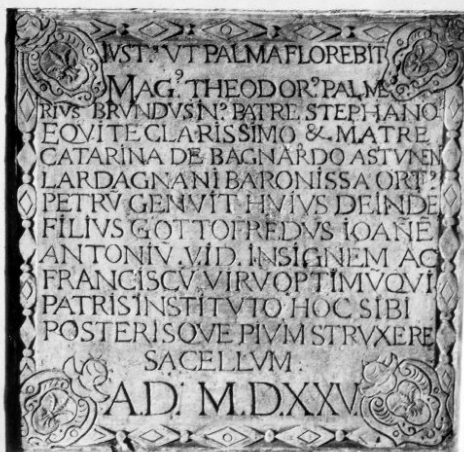 IVST,⁹ VT PALMA FLOREBIT
MAG,⁹ THEODOR,⁹ PALME
RIVS BRVNDVSIN,⁹ PATRE STEPHANO
EQVITE CLARISSIMO & MATRE
CATARINA DE BAGNARDO ASTVNEN
LARDAGNANI BARONISSA ORT,⁹
PETRŪ GENVIT HVIVS DEINDE
FILIVS GOTTOFREDVS IOANĒ
ANTONIŪ V.I.D. INSIGNEM AC
FRANCISCŪ VIRŪ OPTIMŪ QVI
PATRIS INSTITVTO HOC SIBI
POSTERISQVE PIVM STRVXERE
SACELLVM:
A.D. M.DXXV